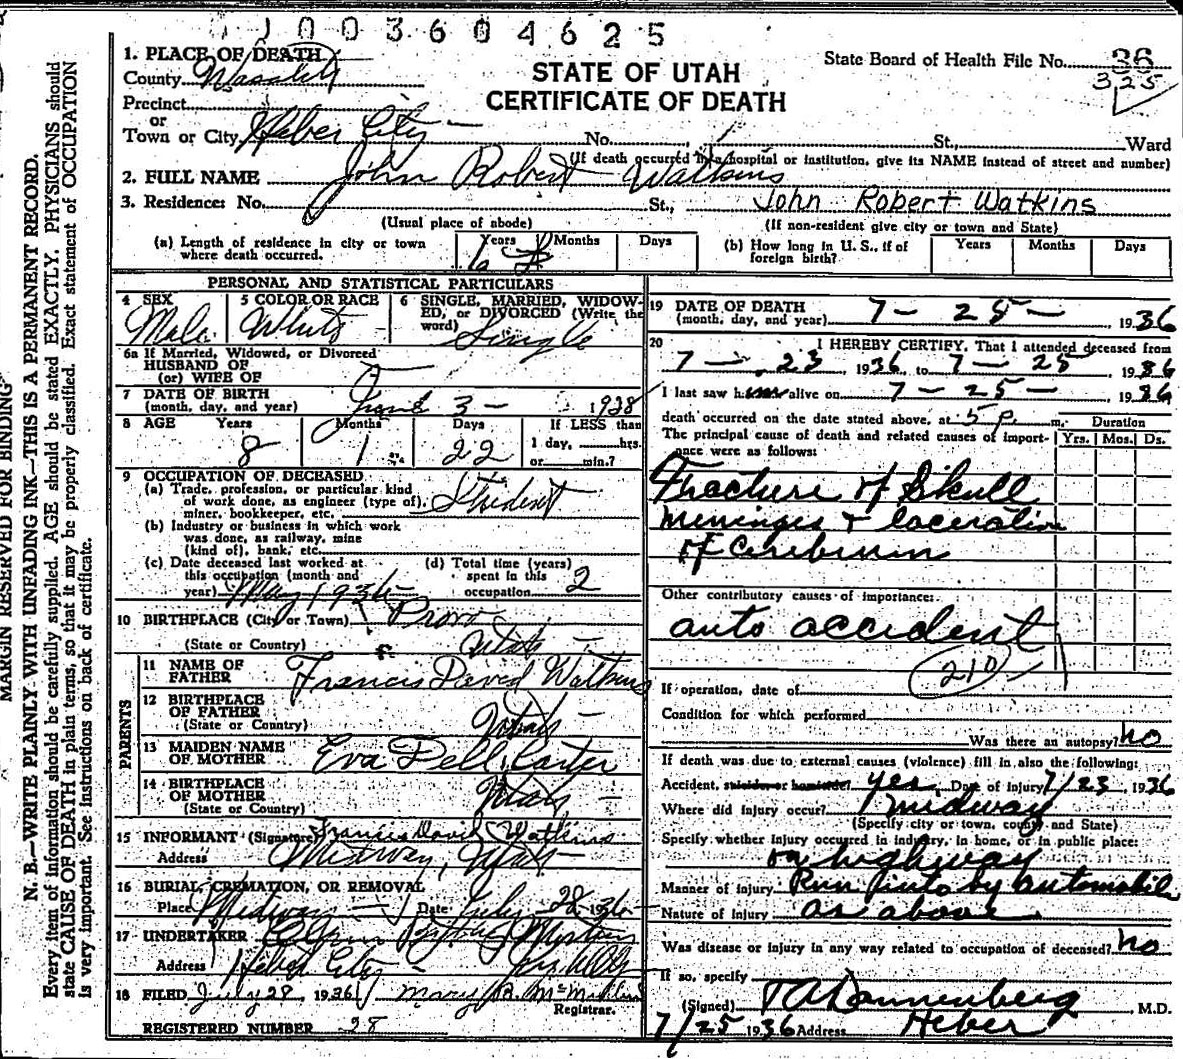 1003604625
1. PLACE OF DEATH
County Wasatch
Precinct
or
Town or City Heber City
STATE OF UTAH
CERTIFICATE OF DEATH
State Board of Health File No. 36
325
No. St., Ward
(If death occurred in a hospital or institution, give its NAME instead of street and number)
2. FULL NAME John Robert Watkins
3. Residence: No. St., John Robert Watkins
(Usual place of abode) (If non-resident give city or town and State)
(a) Length of residence in city or town where death occurred. Years Months Days
(b) How long in U. S., if of foreign birth? Years Months Days
PERSONAL AND STATISTICAL PARTICULARS
4 SEX Male
5 COLOR OR RACE White
6 SINGLE, MARRIED, WIDOWED, or DIVORCED (Write the word) Single
6a If Married, Widowed, or Divorced
HUSBAND OF
(or) WIFE OF
7 DATE OF BIRTH
(month, day, and year) June 3 - 1928
8 AGE Years 8 Months 1 Days 22 If LESS than
1 day, hrs.
or min.?
9 OCCUPATION OF DECEASED
(a) Trade, profession, or particular kind
of work done, as engineer (type of),
miner, bookkeeper, etc. Student
(b) Industry or business in which work
was done, as railway, mine
(kind of), bank, etc.
(c) Date deceased last worked at
this occupation (month and
year) May 1936
(d) Total time (years)
spent in this
occupation 2
10 BIRTHPLACE (City or Town) Provo
(State or Country) Utah
PARENTS
11 NAME OF
FATHER Francis David Watkins
12 BIRTHPLACE
OF FATHER
(State or Country) Utah
13 MAIDEN NAME
OF MOTHER Eva Dell Carter
14 BIRTHPLACE
OF MOTHER
(State or Country) Utah
15 INFORMANT (Signature) Francis David Watkins
Address Midway, Utah
16 BURIAL, CREMATION, OR REMOVAL
Place Midway Date July 28 1936
17 UNDERTAKER
Address Heber City
18 FILED July 28, 1936 Mary
Registrar.
REGISTERED NUMBER 28
19 DATE OF DEATH
(month, day, and year) 7 - 25 - , 1936
20 I HEREBY CERTIFY, That I attended deceased from
7 - 23 1936, to 7 - 25 1936
I last saw him alive on 7 - 25 - 1936
death occurred on the date stated above, at 5 p. m.
Duration
Yrs. Mos. Ds.
The principal cause of death and related causes of importance were as follows:
Fracture of Skull
meninges & laceration
of Cerebrum
Other contributory causes of importance:
auto accident
210
If operation, date of
Condition for which performed
Was there an autopsy? no
If death was due to external causes (violence) fill in also the following:
Accident, suicide or homicide? yes Date of injury 7/23, 1936
Where did injury occur? midway
(Specify city or town, county and State)
Specify whether injury occurred in industry, in home, or in public place:
on highway
Manner of injury Run into by automobile
Nature of Injury as above
Was disease or injury in any way related to occupation of deceased? no
If so, specify
(Signed) Dannenberg, M.D.
7/25 1936 Address Heber
MARGIN RESERVED FOR BINDING
N. B.—WRITE PLAINLY WITH UNFADING INK—THIS IS A PERMANENT RECORD.
Every item of information should be carefully supplied. AGE should be stated EXACTLY. PHYSICIANS should
state CAUSE OF DEATH in plain terms, so that it may be properly classified. Exact statement of OCCUPATION
is very important. See instructions on back of certificate.